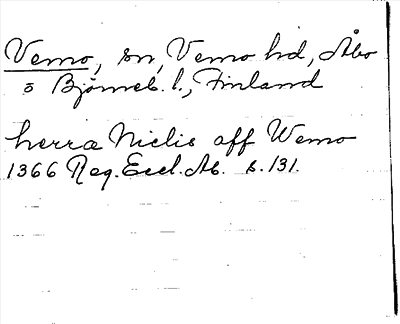 Vemo, sn, Vemo hd, Åbo
o Björneb. l., Finland
herra Niclis aff Wemo
1366 Reg. Eccl. Ab. s. 131.